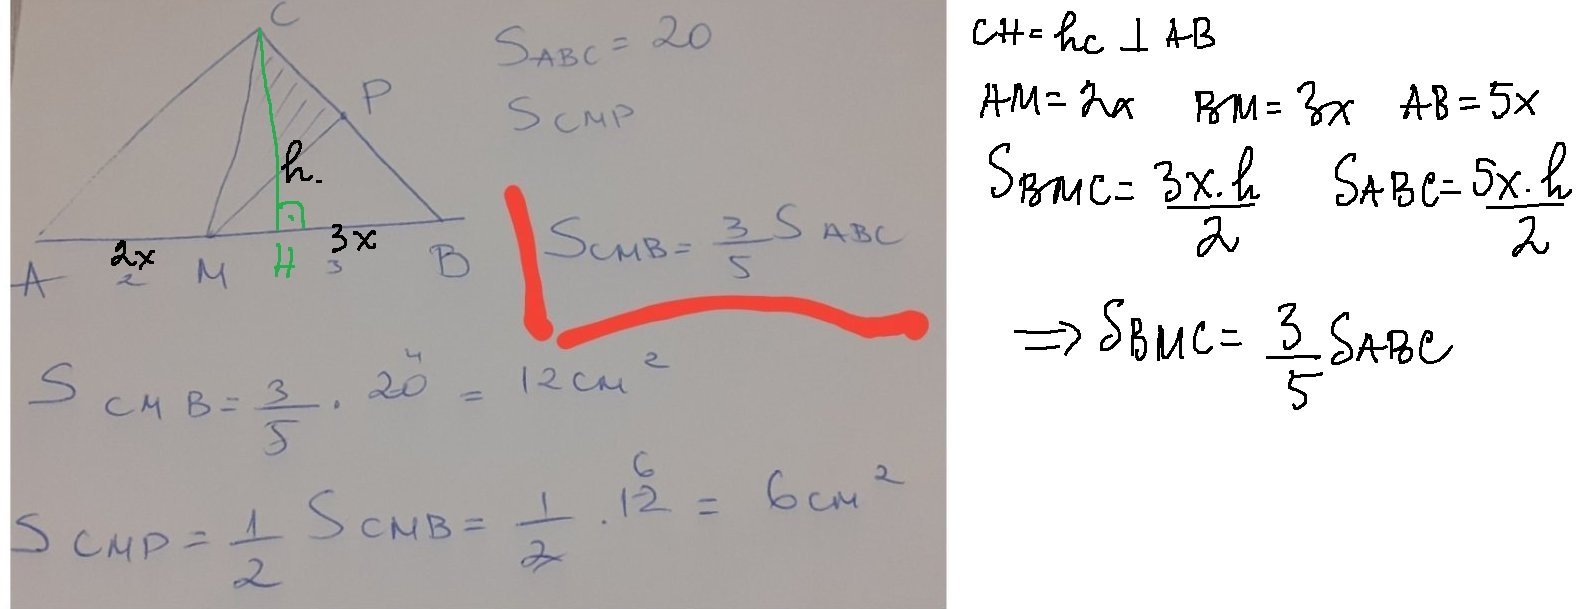 C
P
h.
2x
3x
A
2
M
H
3
B
S ABC = 20
S CMP
S CMB = 3/5 S ABC
S CMB = 3/5 . 20 4 = 12 см²
S CMP = 1/2 S CMB = 1/2 . 12 6 = 6 см²
CH = hc ⊥ AB
AM = 2x BM = 3x AB = 5x
S BMC = 3x.h/2 S ABC = 5x.h/2
⇒ S BMC = 3/5 S ABC